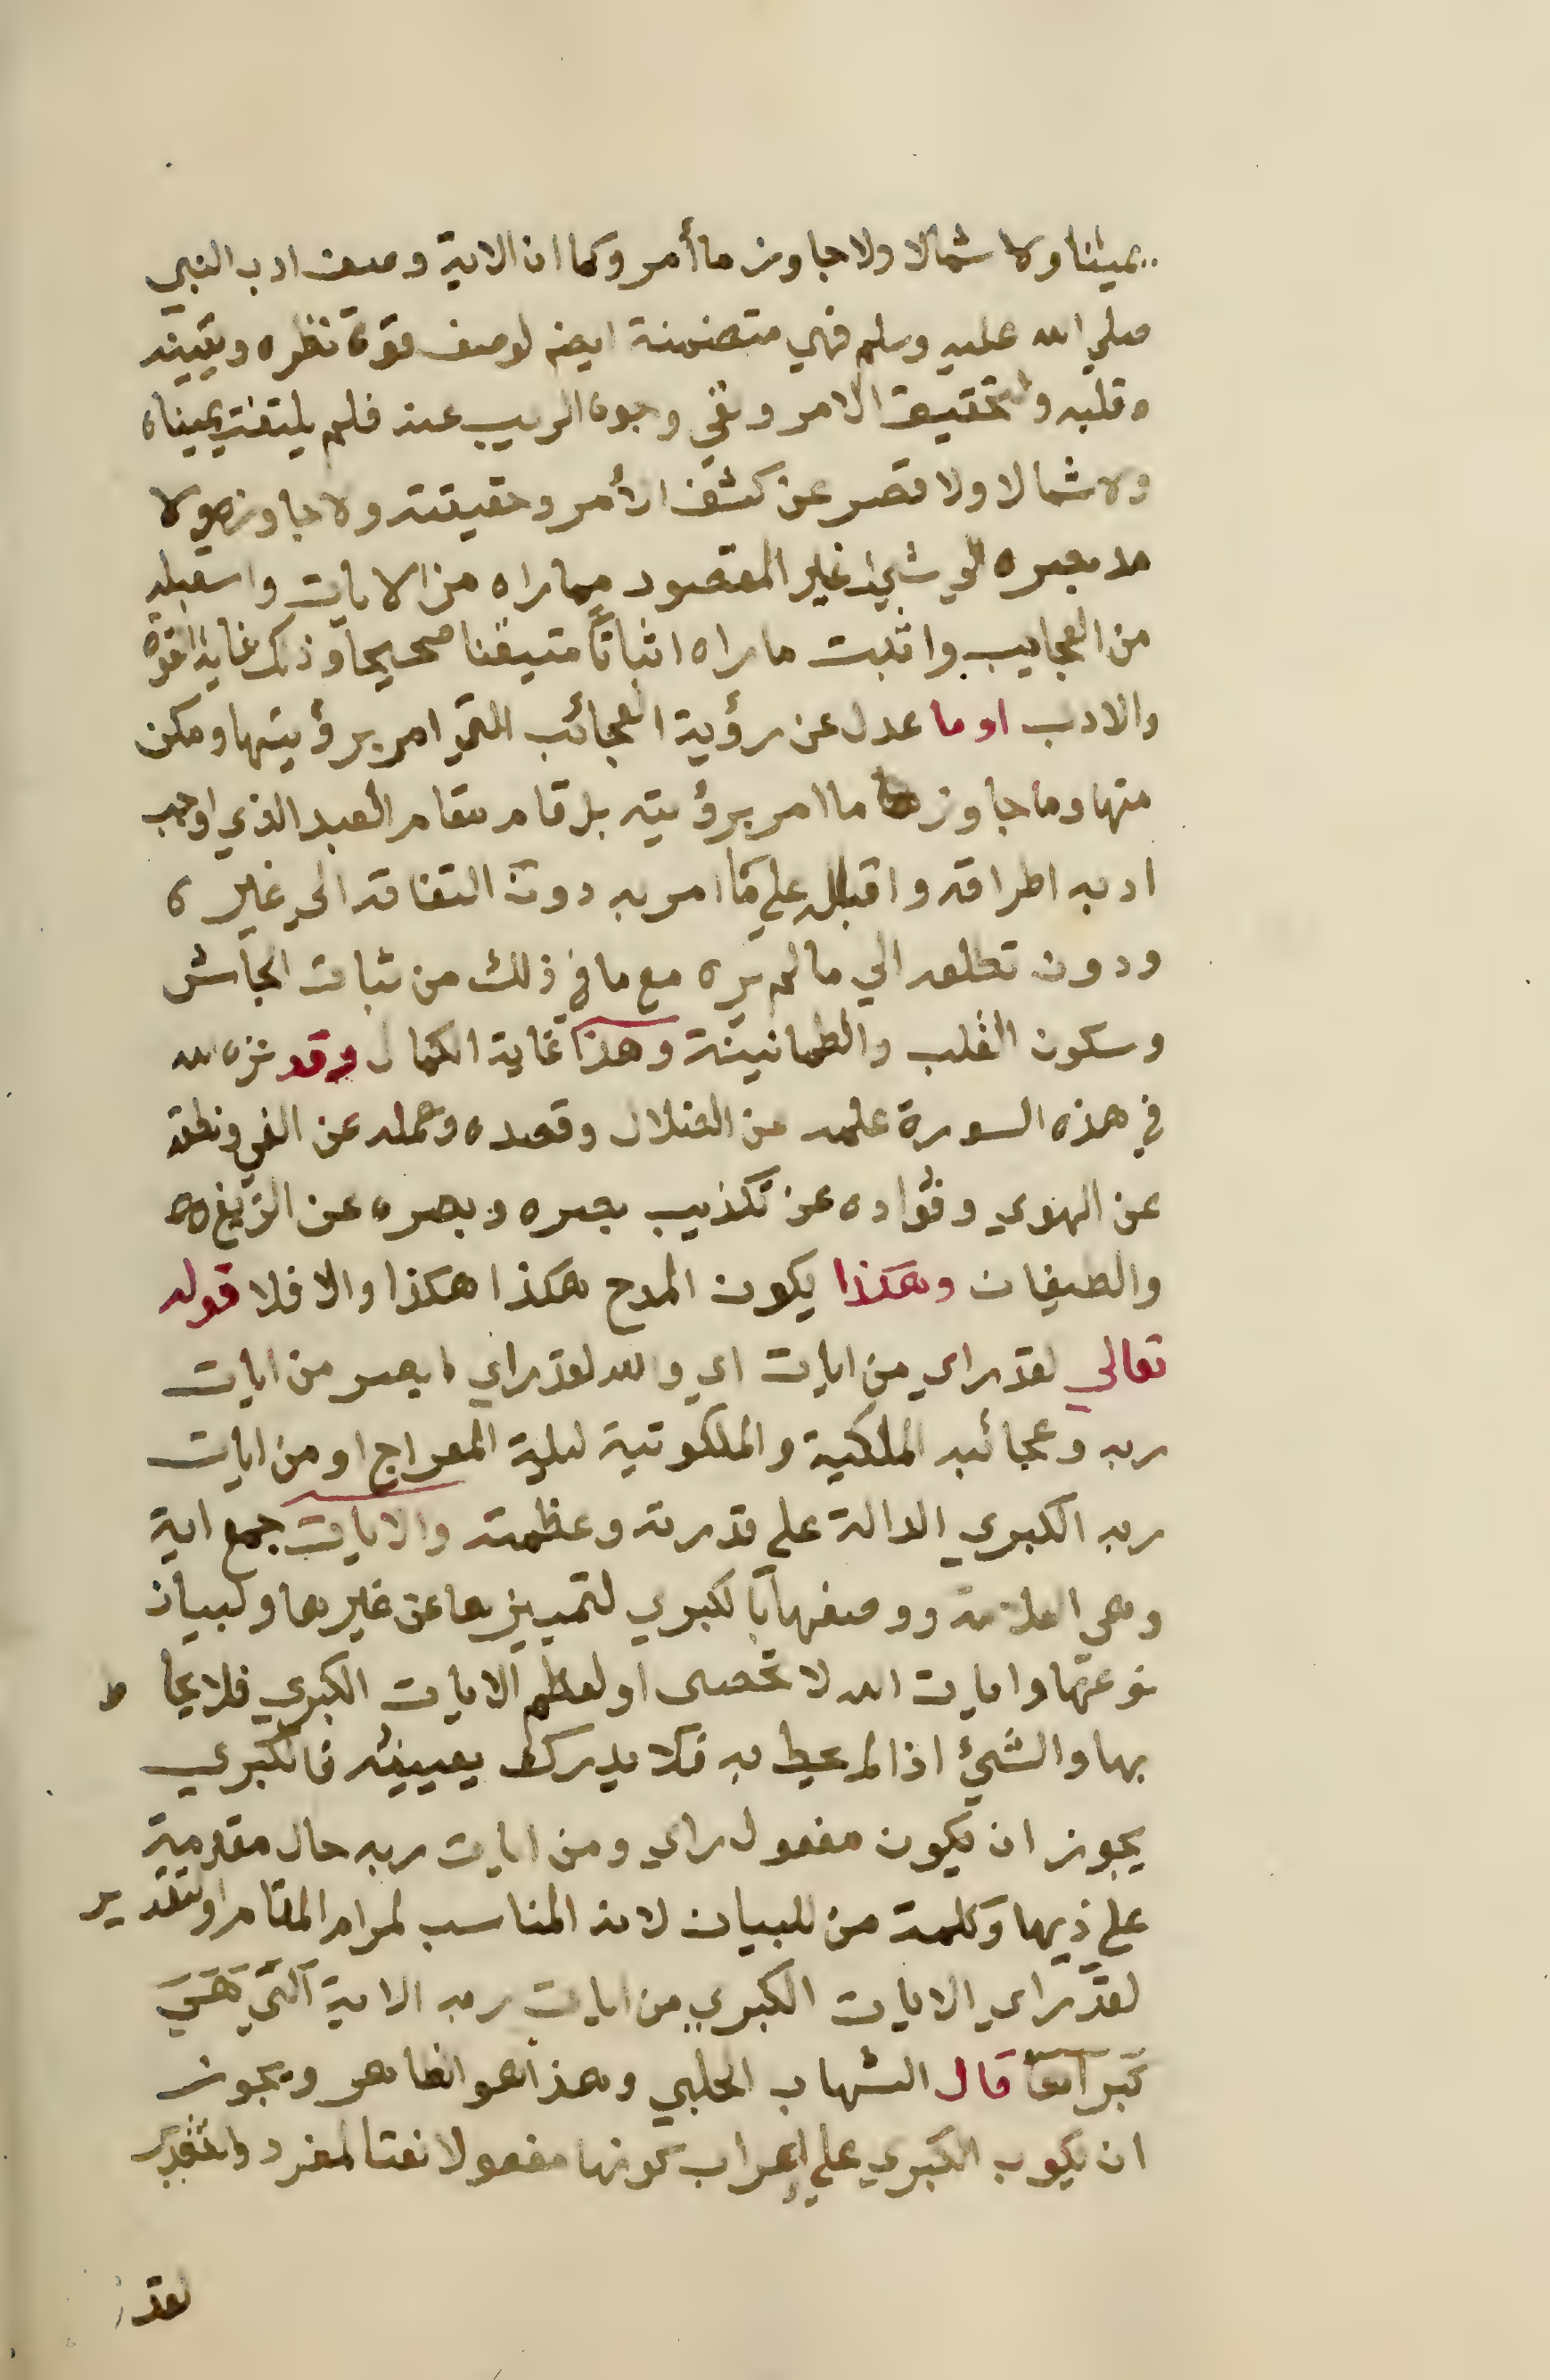 يمينا ولا شمالا ولا جاوز ما أمر وكما ان الاية وصف ادب النبي
صلي الله عليه وسلم فهي متضمنة ايضه لوصف قوة نظره ويقينه
وقلبه وتحقيق الامر ونفي وجوه الريب عنه فلم يلتفت يمينا
ولا شمالا ولا قصر عن كشف الأمر وحقيقته ولا جاوزه ولا
مد بصره الي شئ غير المقصود مما راه من الايات واستقبله
من العجايب واثبت ما راه اثباتاً متيقنا صحيحا وذلك غاية القوة
والادب او ما عدل عن رؤية العجائب التي امر برؤيتها ومكن
منها وما جاوز ما امر برؤيته بل قام مقام العبد الذي اوجب
ادبه اطراقه واقباله علي ما امر به دون التفاته الي غيره
ودون تطلعه الي ما لم يره مع ما في ذلك من ثبات الجأش
وسكون القلب والطمانينة وهذا غاية الكمال وقد نزه الله
في هذه السورة علمه عن الضلال وقصده وعمله عن الغي ونطقه
عن الهوي وفؤاده عن تكذيب بصره وبصره عن الزيغ
والطغيان وهكذا يكون المدح هكذا هكذا والا فلا قوله
تعالي لقد راي من ايات اي والله لقد راي ابصر من ايات
ربه وعجائبه الملكية والملكوتية ليلة المعراج او من ايات
ربه الكبري الدالة علي قدرته وعظمته والايات جمع اية
وهي العلامة ووصفها بالكبري لتمييزها عن غيرها ولبيان
نوعها وايات الله لا تحصى او لعظم الايات الكبري فلا يحاط
بها والشئ اذا لم يحيط به فلا يدرك بعيينه فالكبري
يجوز ان يكون مفعول راي ومن ايات ربه حال مقدمية
علي ذيها وكلمة من للبيان لانه المناسب لمرام المقام او لتقدير
لقد راي الايات الكبري من ايات ربه الاية التي هي
كبراها قال الشهاب الحلبي وهذا هو الظاهر ويجوز
ان يكون الكبري علي إعراب كونها مفعولا نعتا لمفرد والتقدير
لقد